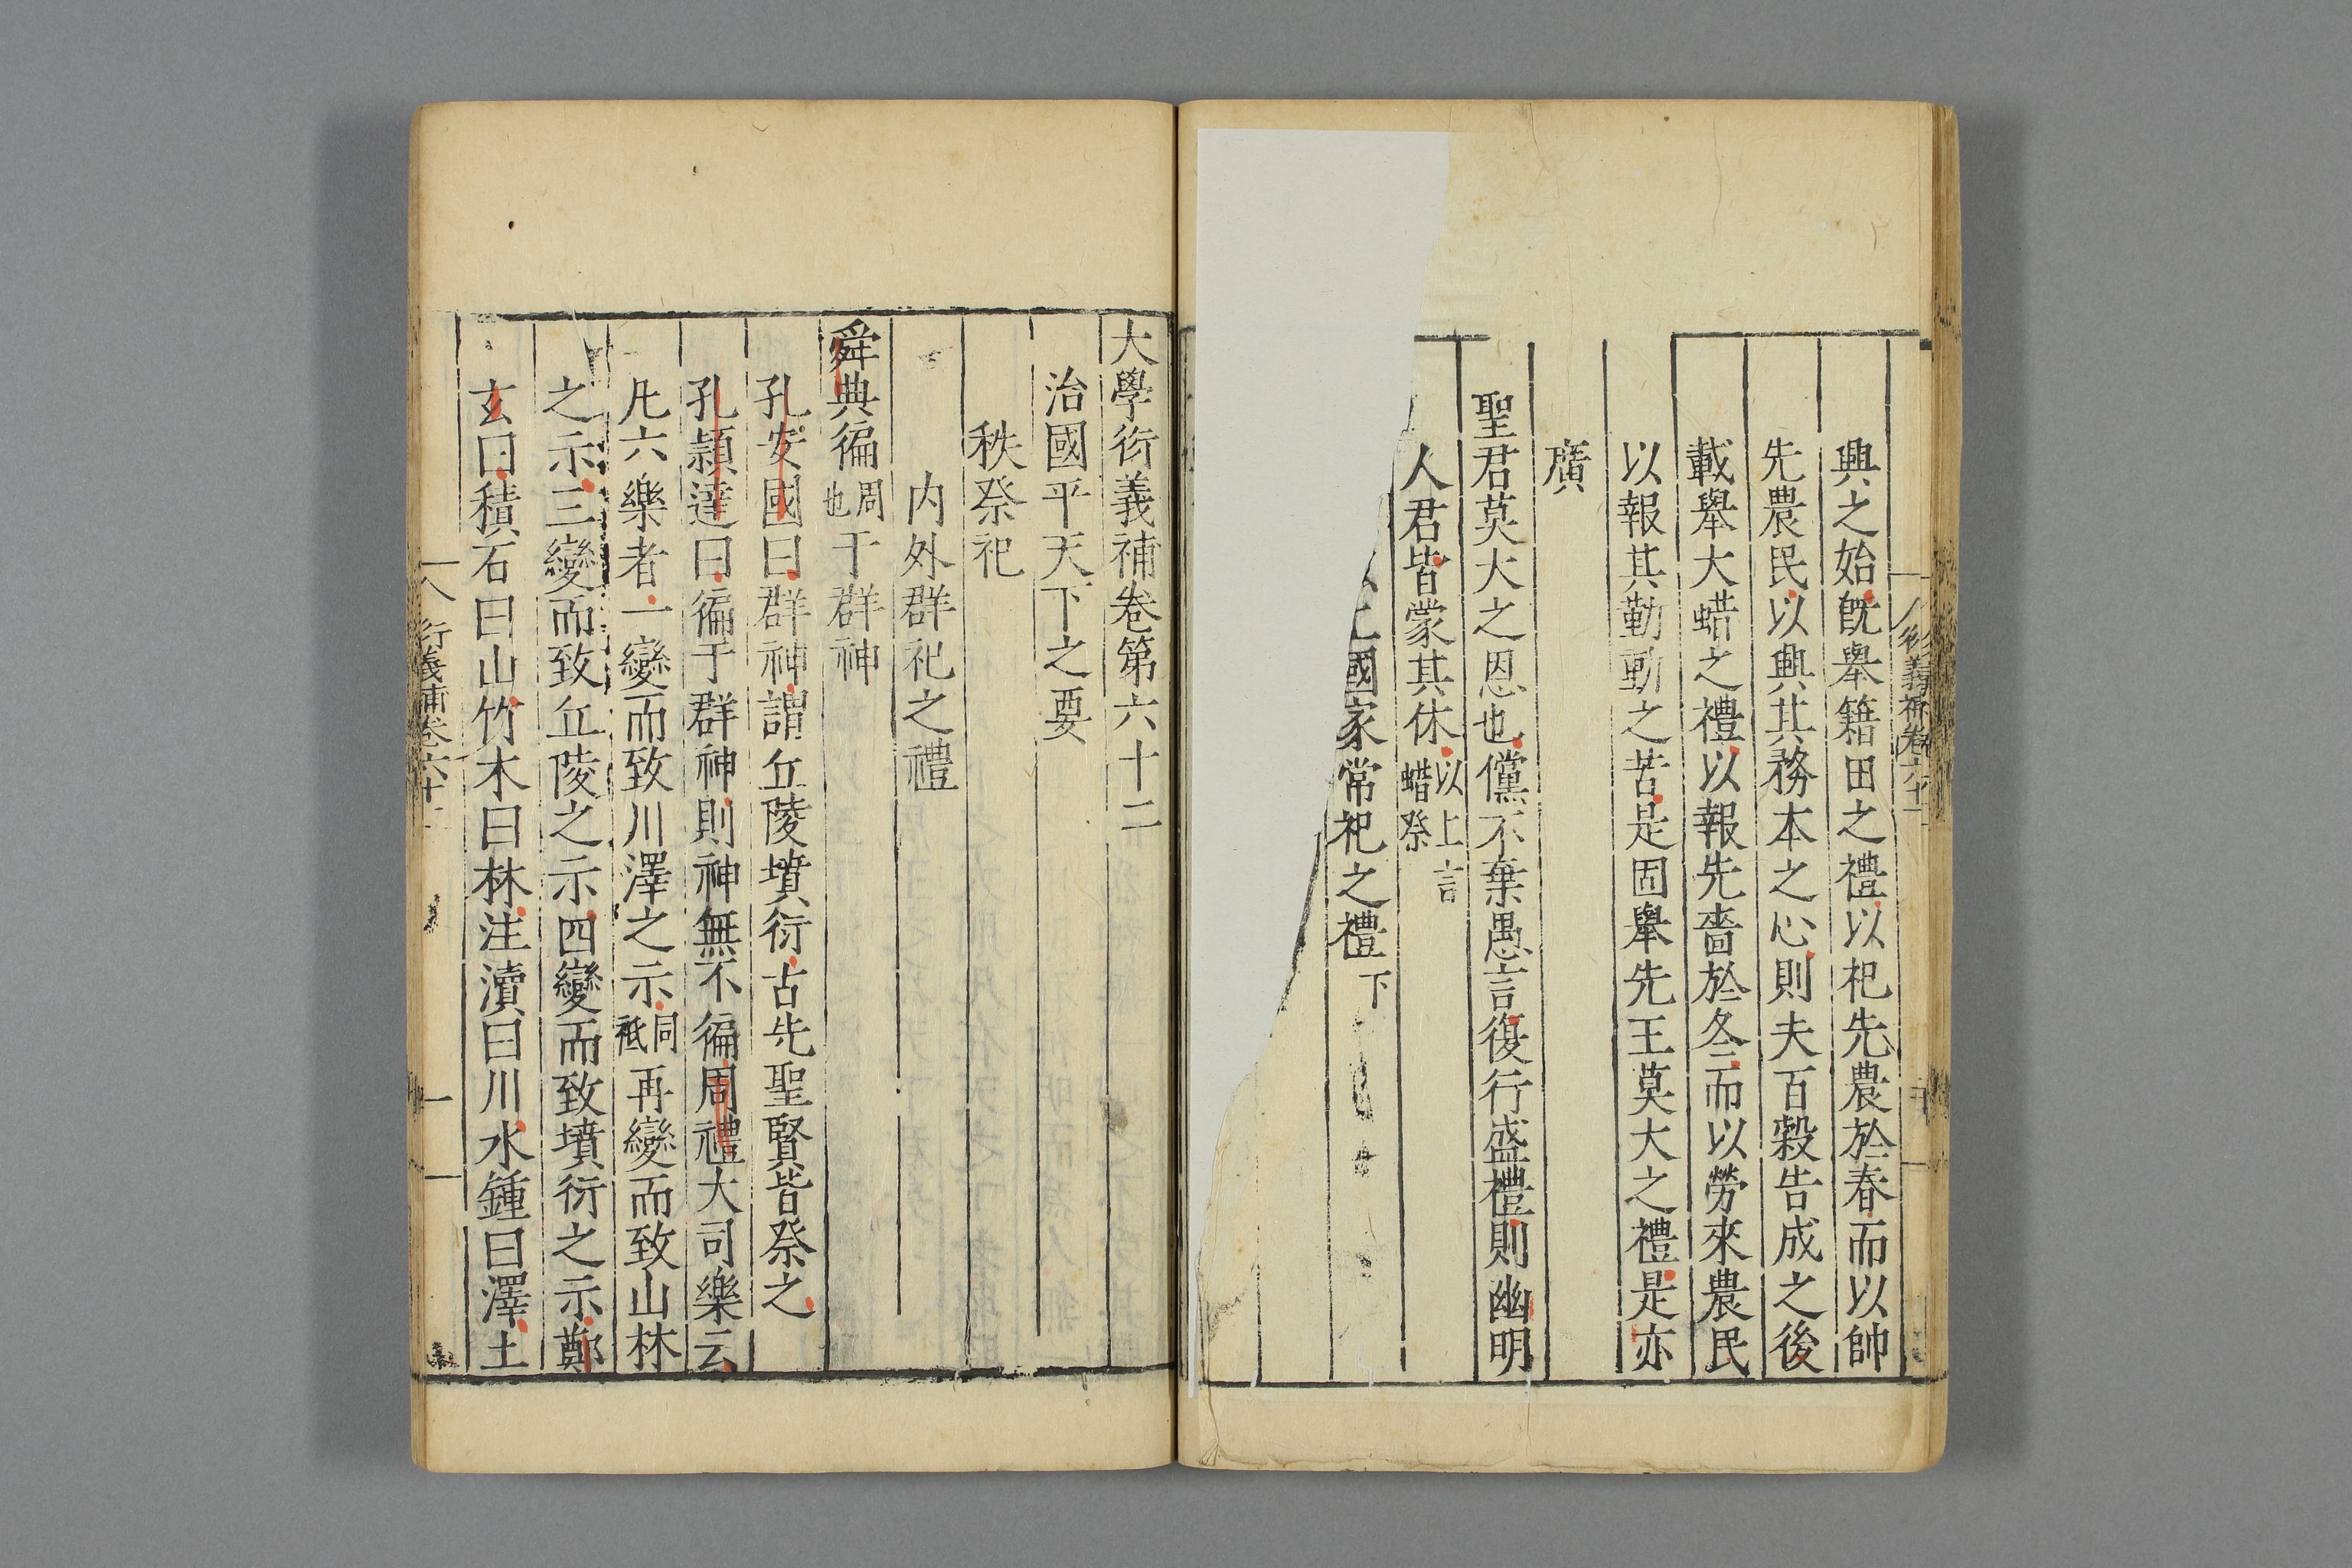 興之始旣舉籍田之禮以祀先農於春而以帥
先農民以興其務本之心則夫百穀告成之後
載舉大蜡之禮以報先嗇於冬而以勞來農民
以報其勤動之苦是固舉先王莫大之禮是亦
廣
聖君莫大之恩也儻不棄愚言復行盛禮則幽明
人君皆蒙其休以上言蜡祭
國家常祀之禮下
大學衍義補卷第六十二
治國平天下之要
秩祭祀
内外群祀之禮
舜典徧周也于群神
孔安國曰群神謂丘陵墳衍古先聖賢皆祭之
孔穎達曰徧于群神則神無不徧周禮大司樂云
凡六樂者一變而致川澤之示同祗再變而致山林
之示三變而致丘陵之示四變而致墳衍之示鄭
玄曰積石曰山竹木曰林注瀆曰川水鍾曰澤土
衍義補卷六十二
一